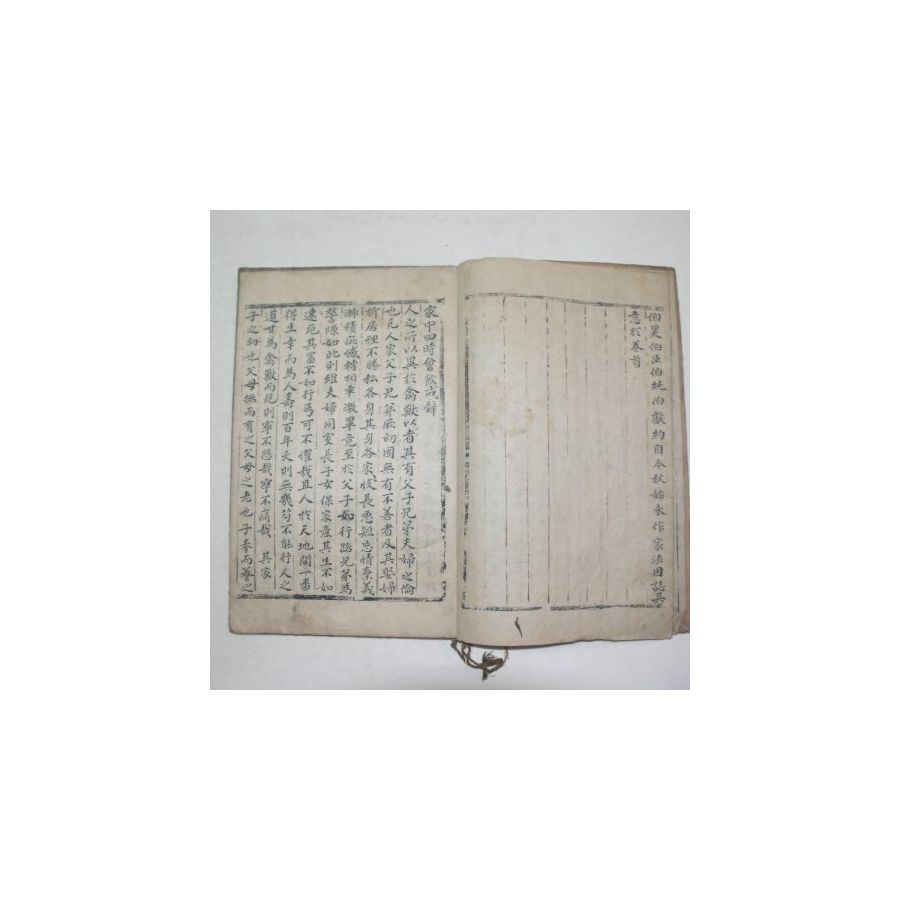 伯昊伯臣伯純伯獻約自今秋始永作家法因誌其
意於卷首
家中四時會飮戒辭
人之所以異於禽獸以者其有父子兄弟夫婦之倫
也凡人家父子兄弟厥初固無有不善者及其娶婦
析居理不勝私各身其身各家長惡短忘情棄義
漸積疵憾轉相牽激畢竟至於父子如行路兄弟爲
讐隙如此則雖夫婦同室長子女保家産其生不如
速死其富不如行丐可不懼哉且人於天地間一番
得生幸而爲人壽則百年夭則無幾苟不能行人之
道甘爲禽獸而死則寧不悲哉寧不痛哉 其家
子之幼也父母撫而育之父母之老也子奉而養之